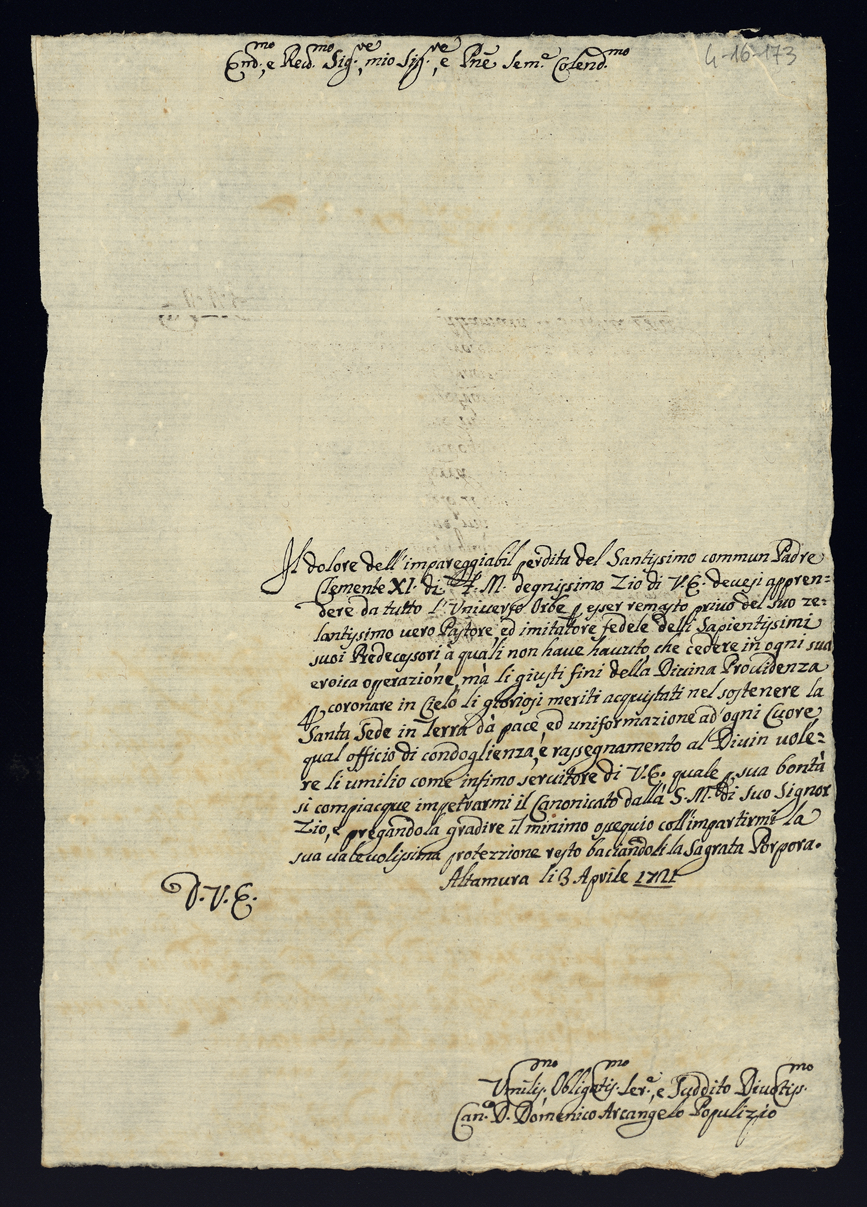 4-16-173
Em̃o, e Reũ.mo Sig.re, mio Sig.re, e Pñe Sem.e Colend.mo
Il dolore dell'impareggiabil perdita del Santissimo commun Padre
Clemente XI. di F. M. degnissimo Zio di V.E. devesi appren=
dere da tutto l'Universo Orbe p esser remasto privo del suo ze=
lantissimo vero Pastore ed imitatore fedele delli Sapientissimi
suoi Redecessori à quali non have havuto che cedere in ogni sua
eroica operazione, mà li giusti fini della Divina Providenza
p coronare in Cielo li gloriosi meriti acquistati nel sostenere la
Santa Sede in Terra dà pace, ed uniformazione ad ogni Cuore
qual officio di condoglienza, e rassegnamento al Divin vole=
re li umilio come infimo servitore di V.E. quale p sua bontà
si compiacque impetrarmi il Canonicato dalla S. M.tà di suo Signor
Zio, e pregandola gradire il minimo ossequio coll'impartirmi la
sua valevolissima protezzione resto baciandoli la Sagrata Porpora.
Altamura li 3 Aprile 1721
D. V. E.
Umilis.mo, Obligatis.mo Ser.e, e Suddito Divotis.mo
Can.o D. Domenico Arcangelo Populizio